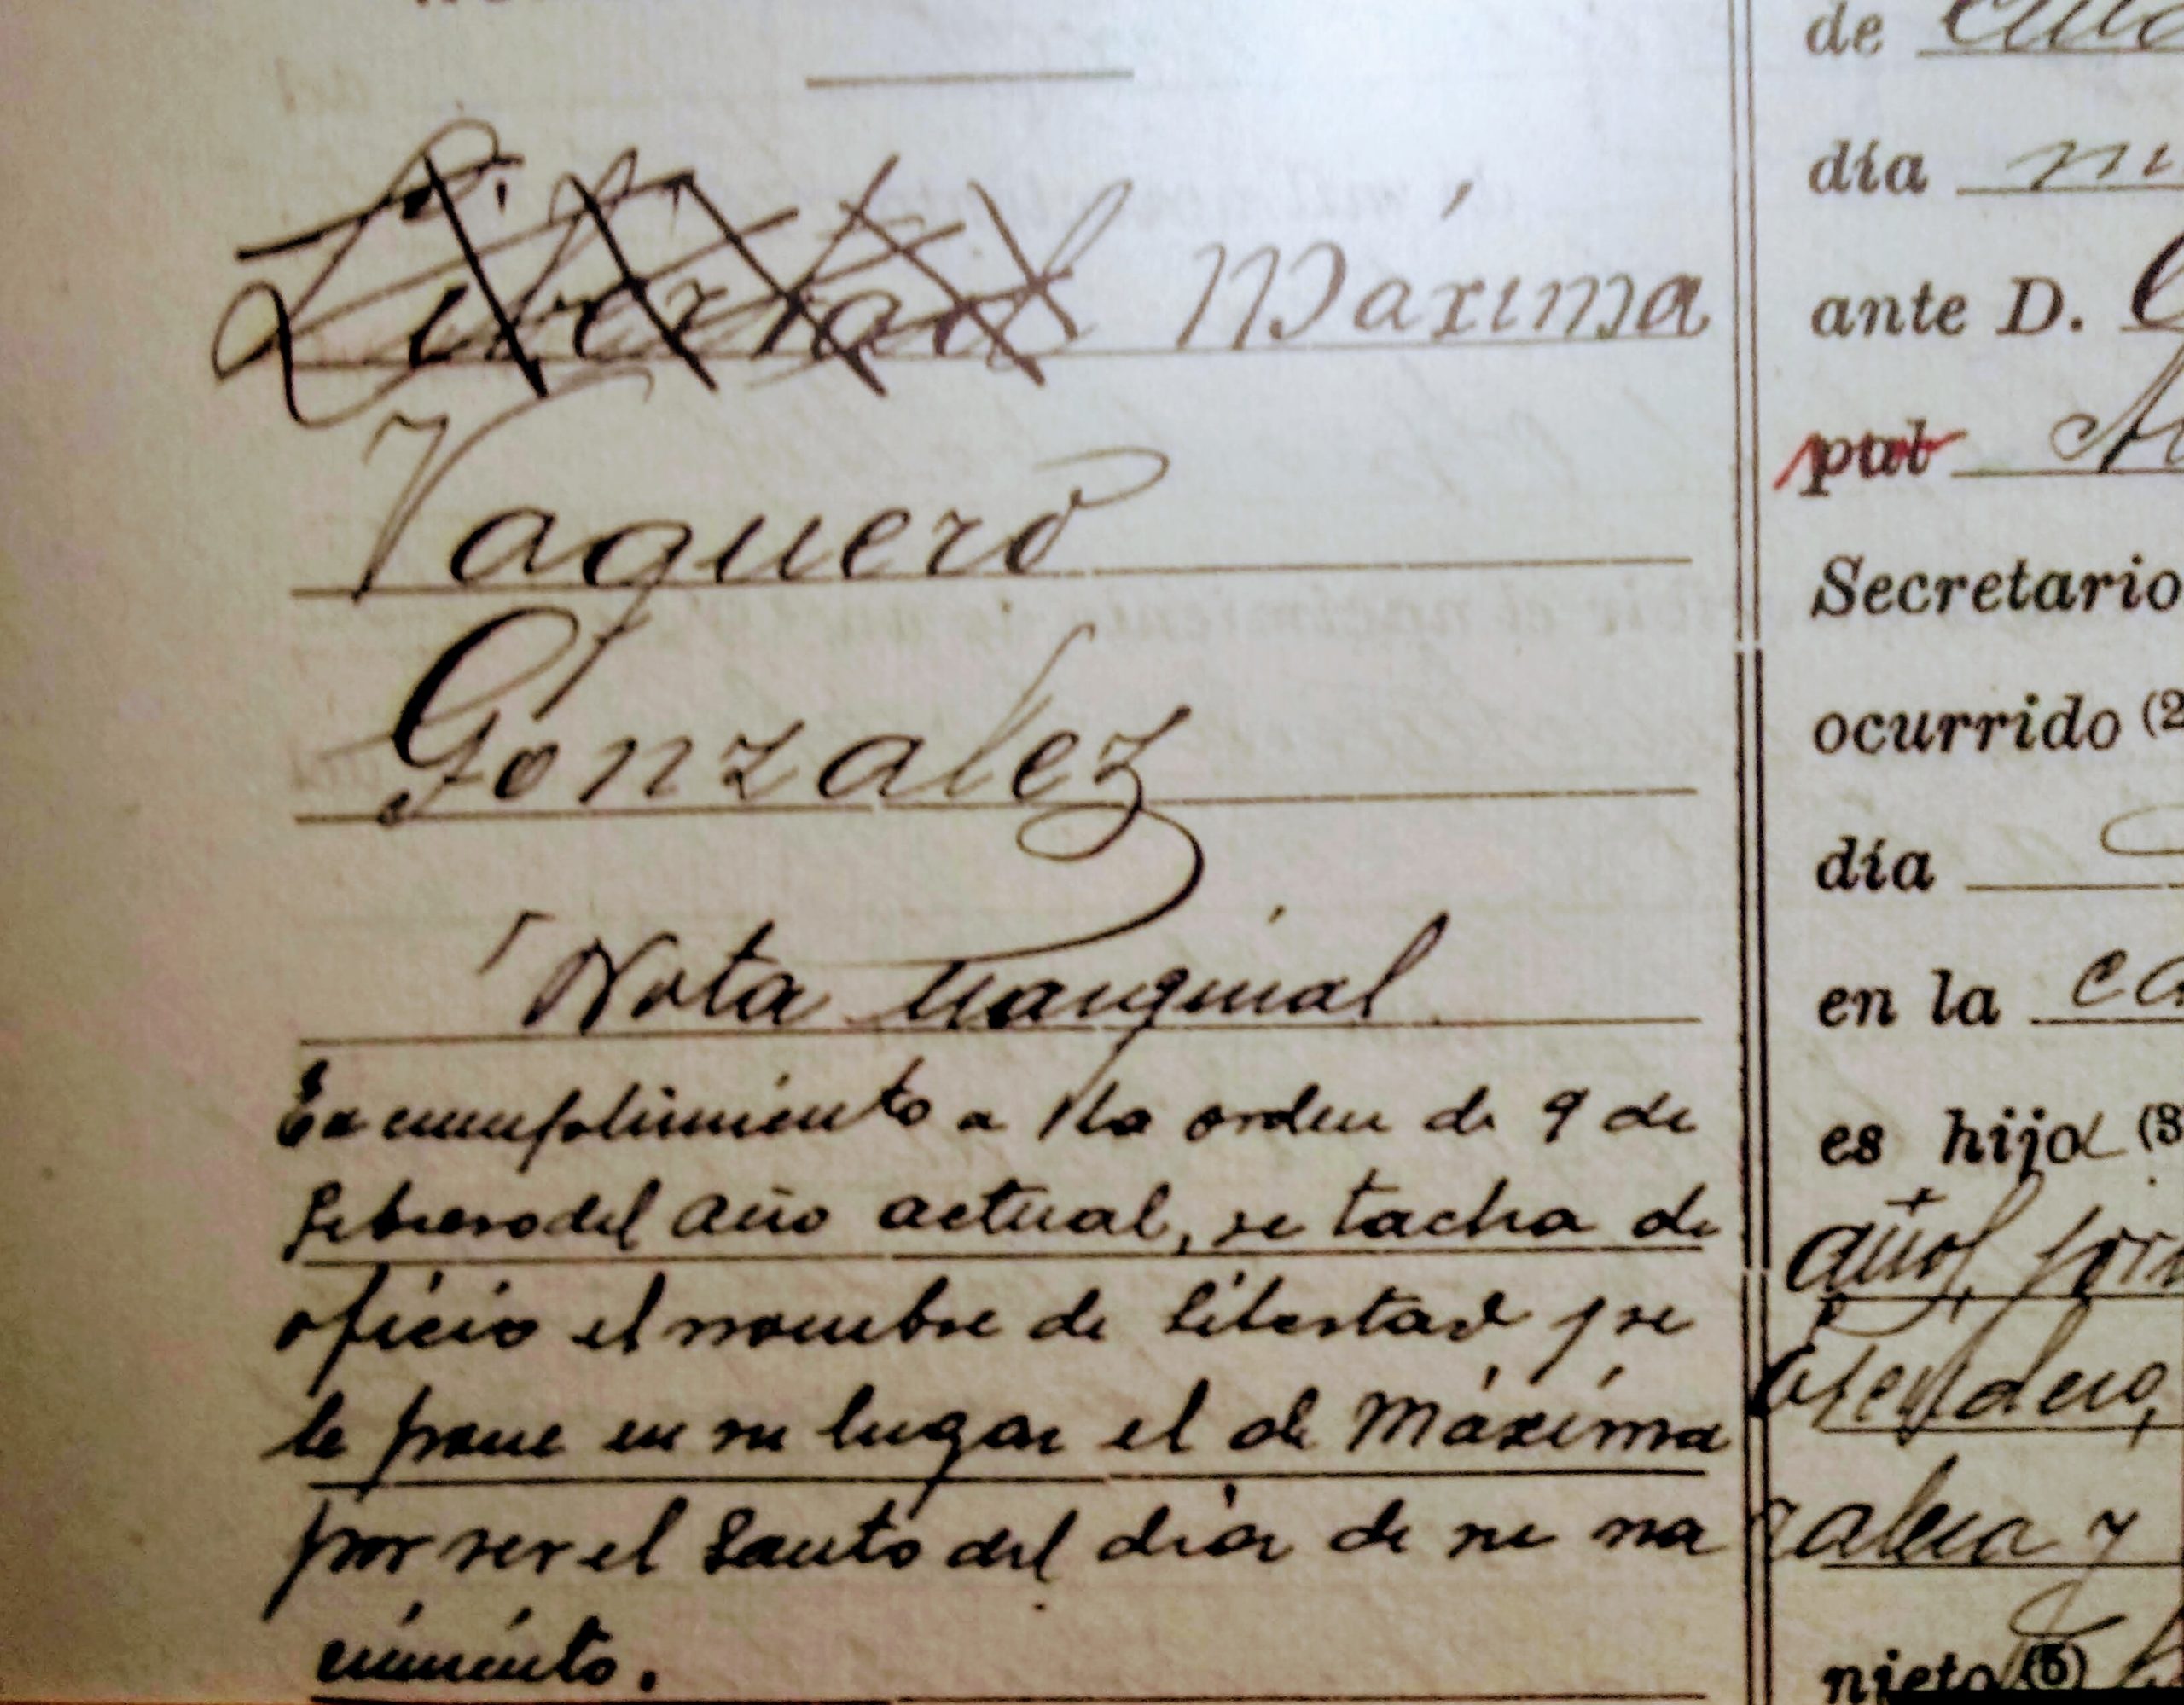 Libertad Máxima
Vaquero
Gonzalez
Nota Marginal
En cumplimiento a la orden de 9 de
Febrero del año actual, se tacha de
oficio el nombre de Libertad y se
le pone en su lugar el de Máxima
por ser el Santo del día de su na
cimiento.
de
día
ante D.
pal
Secretario
ocurrido (2
día
en la ca
es hija (3
años,
zalea y
nieto (5)